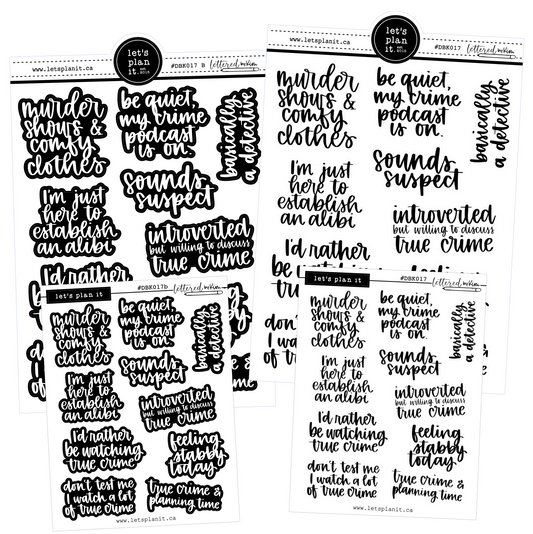 www.letsplanit.ca
let's
plan
it.
#DBK017 B
lettered by Kim
murder
shows &
comfy
clothes
be quiet,
my crime
podcast
is on.
basically
a detective
I'm just
here to
establish
an alibi
sounds
suspect
introverted
but willing to discuss
true crime
I'd rather
www.letsplanit.ca
let's
plan
it.
#DBK017
murder
shows &
comfy
clothes
be quiet,
my crime
podcast
is on.
basically
a detective
I'm just
here to
establish
an alibi
sounds
suspect
introverted
but willing to discuss
true crime
I'd rather
let's plan it
#DBK017b
murder
shows &
comfy
clothes
be quiet,
my crime
podcast
is on.
basically
a detective
I'm just
here to
establish
an alibi
sounds
suspect
introverted
but willing to discuss
true crime
I'd rather
be watching
true crime
feeling
stabby
today.
don't test me
I watch a lot
of true crime
true crime &
planning time
www.letsplanit.ca
let's plan it
#DBK017
murder
shows &
comfy
clothes
be quiet,
my crime
podcast
is on.
basically
a detective
I'm just
here to
establish
an alibi
sounds
suspect
introverted
but willing to discuss
true crime
I'd rather
be watching
true crime
feeling
stabby
today.
don't test me
I watch a lot
of true crime
true crime &
planning time
www.letsplanit.ca